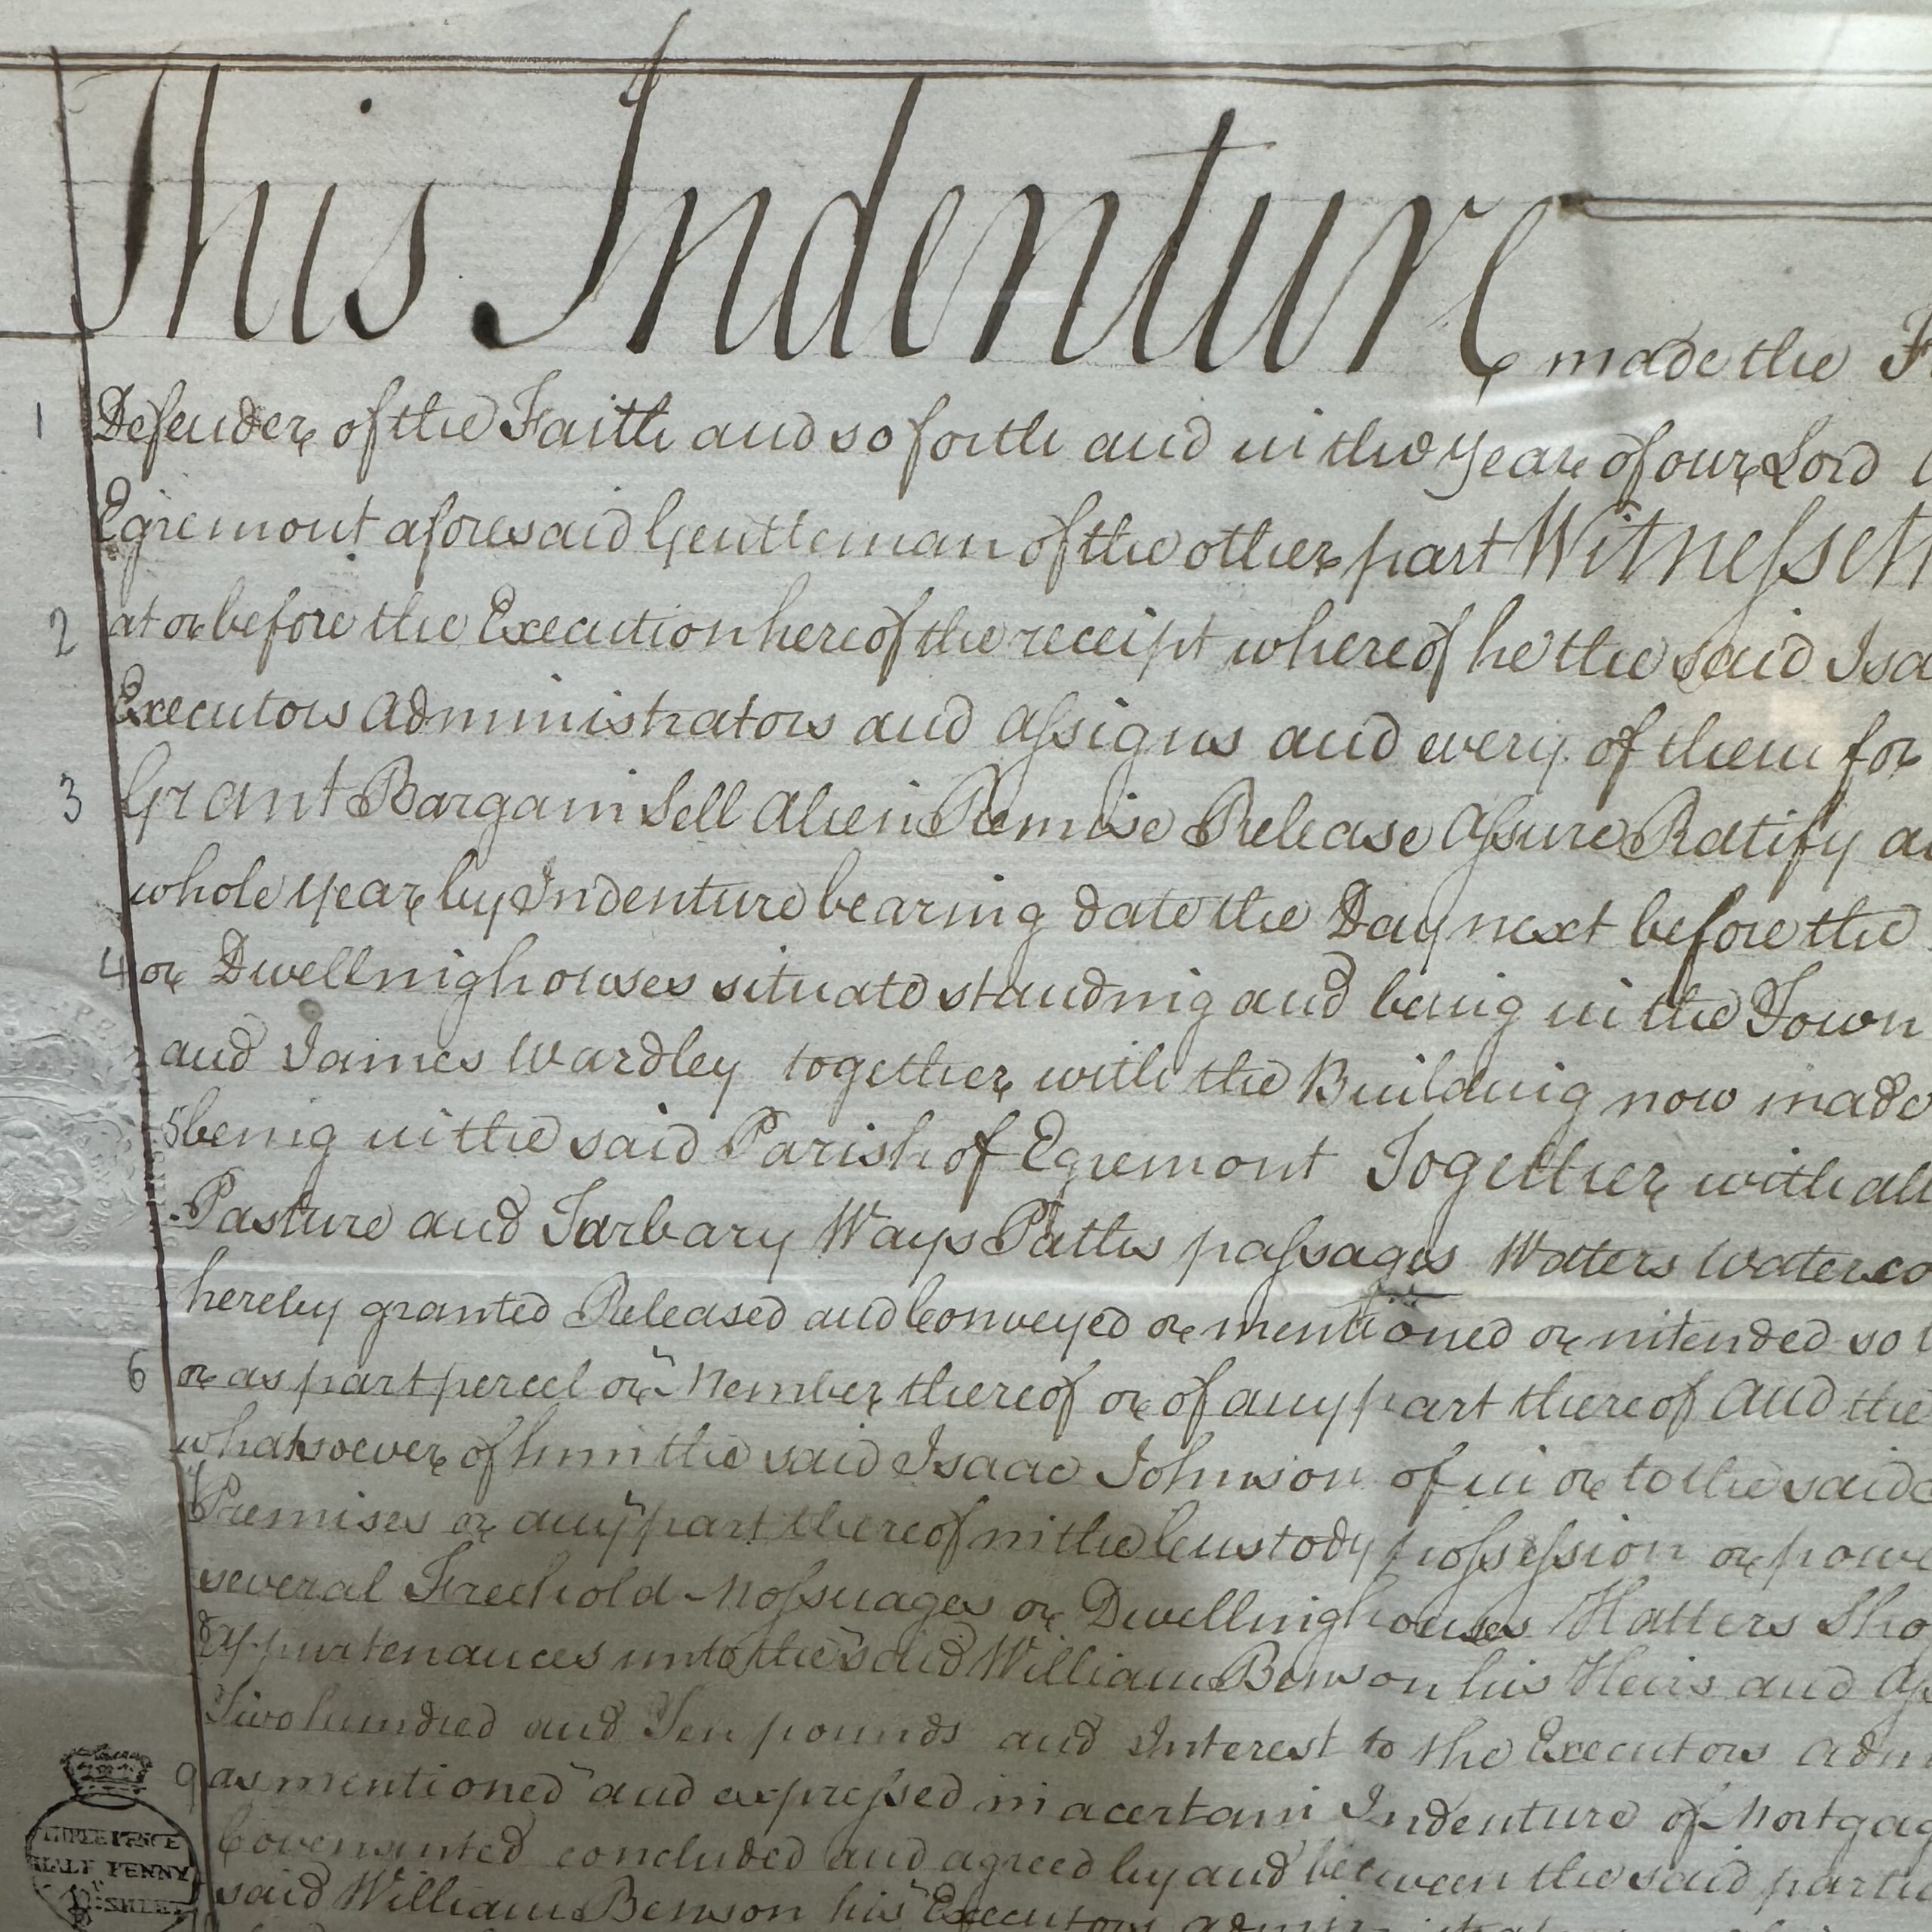 This Indenture made the
1 Defender of the Faith and so forth and in the Year of our Lord
Egremont aforesaid Gentleman of the other part Witnesseth
2 at or before the Execution hereof the receipt whereof he the said Isa
Executors Administrators and Assigns and every of them for
3 Grant Bargain Sell Alien Remise Release Assure Ratify a
whole year by Indenture bearing date the Day next before the
4 or Dwellinghouses situate standing and being in the Town
and James Wardley together with the Building now made
5 being in the said Parish of Egremont Together with all
Pasture and Tarbary Ways Paths passages Watters Waterco
hereby granted Released and Conveyed or mentioned or intended so
6 or as part percel or Member thereof or of any part thereof And the
whatsoever of him the said Isaac Johnson of in or to the said
Premises or any part thereof in the Custody possession or powe
several Freehold Messuages or Dwellinghouses Hatters Sho
8 Appurtenances unto the said William Benson his Heirs and As
Two hundred and Ten pounds and Interest to the Executors Adm
9 as mentioned and expressed in a certain Indenture of Mortgag
Covenanted concluded and agreed by and between the said partie
said William Benson his Executors Admin
THREE PENCE
HALF PENNY
Pr SHEET